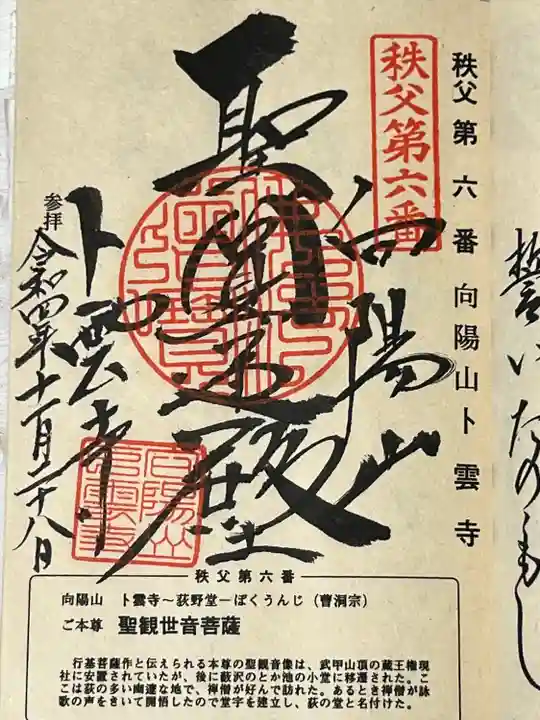 秩父第六番 向陽山卜雲寺
秩父第六番
向陽山
聖
殿
卜雲寺
参拝
令和四年十一月二十八日
秩父第六番
向陽山 卜雲寺~荻野堂-ぼくうんじ(曹洞宗)
ご本尊 聖観世音菩薩
行基菩薩作と伝えられる本尊の聖観音像は、武甲山頂の蔵王権現
社に安置されていたが、後に藪沢のとか池の小堂に移遷された。こ
こは荻の多い幽邃な地で、禅僧が好んで訪れた。あるとき禅僧が詠
歌の声をきいて開悟したので堂宇を建立し、荻の堂と名付けた。